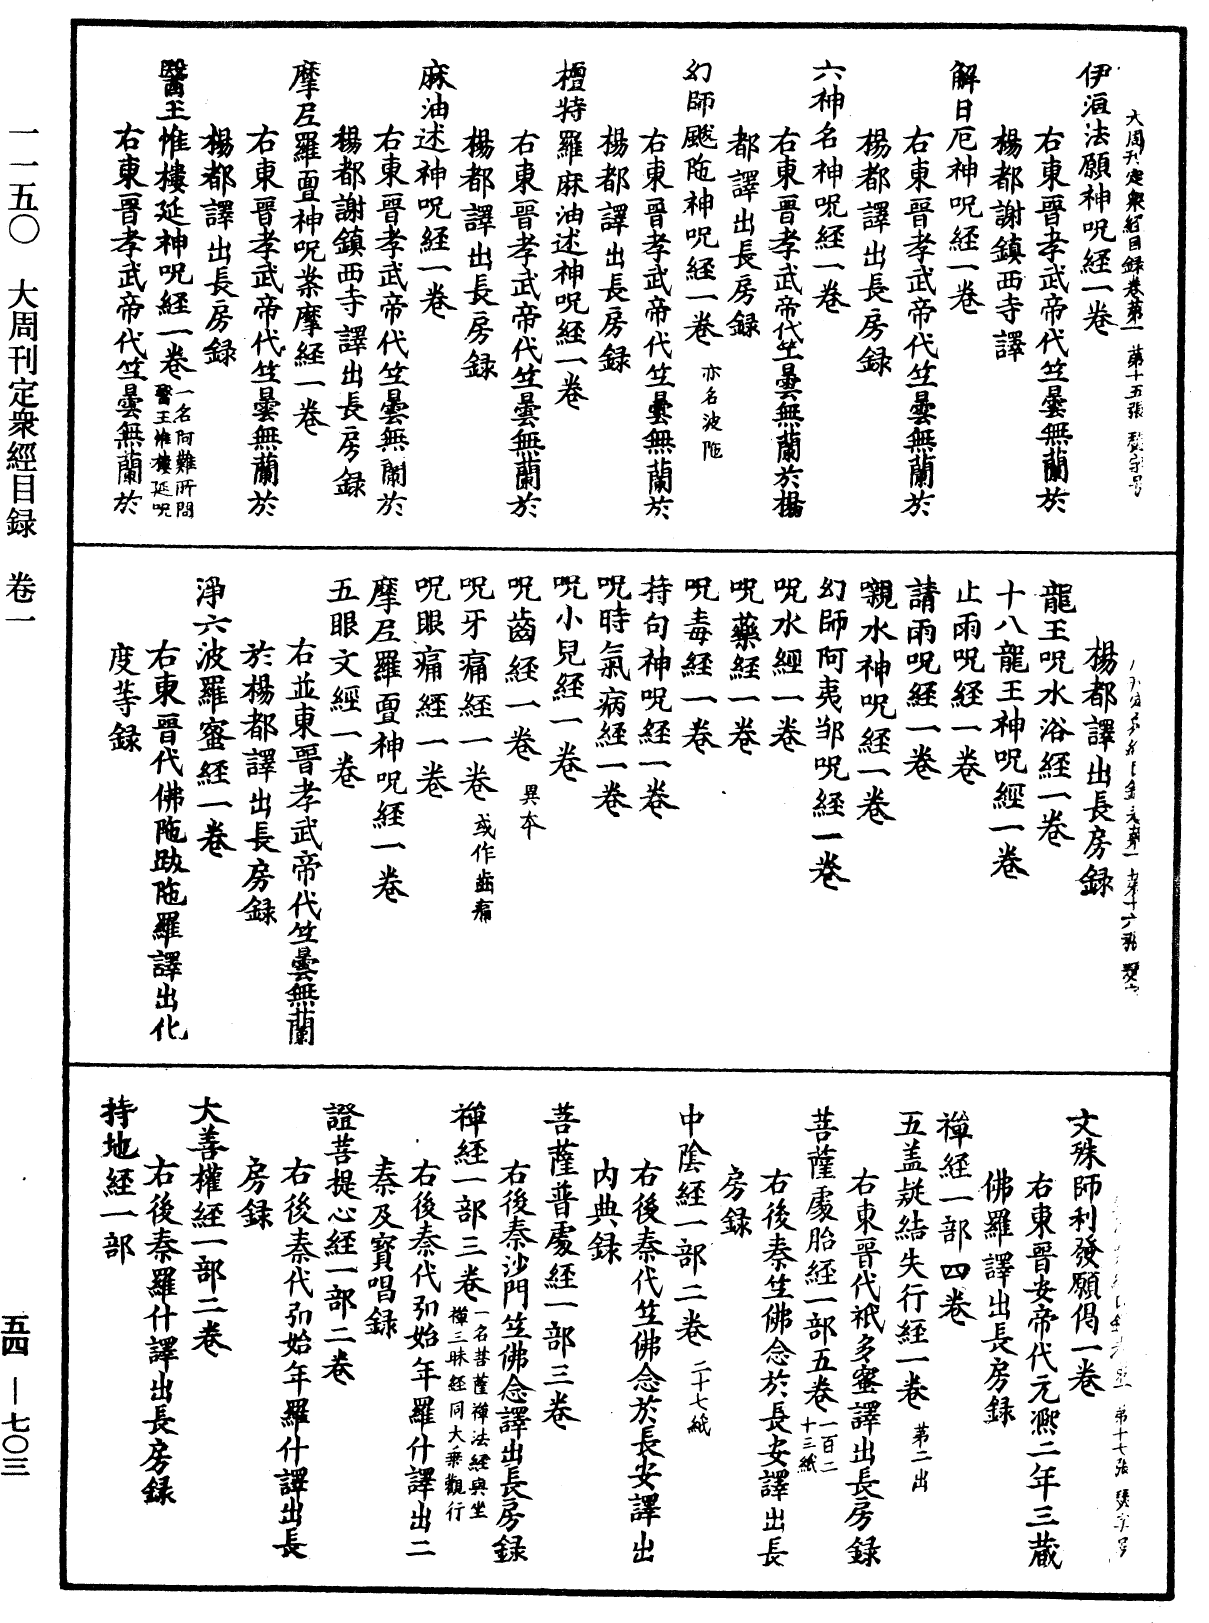 一一五〇　大周刊定衆經目録　卷一
五四—七〇三
大周刊定衆經目録卷第一　第十五張
伊洹法願神呪經一卷
右東晉孝武帝代竺曇無蘭於
楊都謝鎮西寺譯
解日厄神呪經一卷
右東晉孝武帝代竺曇無蘭於
楊都譯出長房録
六神名神呪經一卷
右東晉孝武帝代竺曇無蘭於楊
都譯出長房録
幻師颰陁神呪經一卷　亦名波陁
右東晉孝武帝代竺曇無蘭於
楊都譯出長房録
檀特羅麻油述神呪經一卷
右東晉孝武帝代竺曇無蘭於
楊都譯出長房録
麻油述神呪經一卷
右東晉孝武帝代竺曇無蘭於
楊都謝鎮西寺譯出長房録
摩尼羅亶神呪案摩經一卷
右東晉孝武帝代竺曇無蘭於
楊都譯出長房録
醫王惟樓延神呪經一卷　一名阿難所問醫王惟樓延呪
右東晉孝武帝代竺曇無蘭於
楊都譯出長房録
龍王呪水浴經一卷
十八龍王神呪經一卷
止雨呪經一卷
請雨呪經一卷
嚫水神呪經一卷
幻師阿夷邹呪經一卷
呪水經一卷
呪藥經一卷
呪毒經一卷
持句神呪經一卷
呪時氣病經一卷
呪小兒經一卷
呪齒經一卷　異夲
呪牙痛經一卷　或作齒痛
呪眼痛經一卷
摩尼羅亶神呪經一卷
五眼文經一卷
右並東晉孝武帝代竺曇無蘭
於楊都譯出長房録
淨六波羅蜜經一卷
右東晉代佛陁跋陁羅譯出化
度等録
文殊師利發願偈一卷
右東晉安帝代元熈二年三藏
佛羅譯出長房録
禪經一部四卷
五盖疑結失行經一卷　第二出
右東晉代祇多蜜譯出長房録
菩薩處胎經一部五卷　一百二十三紙
右後秦竺佛念於長安譯出長
房録
中陰經一部二卷　二十七紙
右後秦代竺佛念於長安譯出
内典録
菩薩普處經一部三卷
右後秦沙門竺佛念譯出長房録
禪經一部三卷　一名菩薩禪法經與坐禪三昧經同大乘觀行
右後秦代弘始年羅什譯出二
秦及寳唱録
證菩提心經一部二卷
右後秦代弘始年羅什譯出長
房録
大善權經一部二卷
右後秦羅什譯出長房録
持地經一部